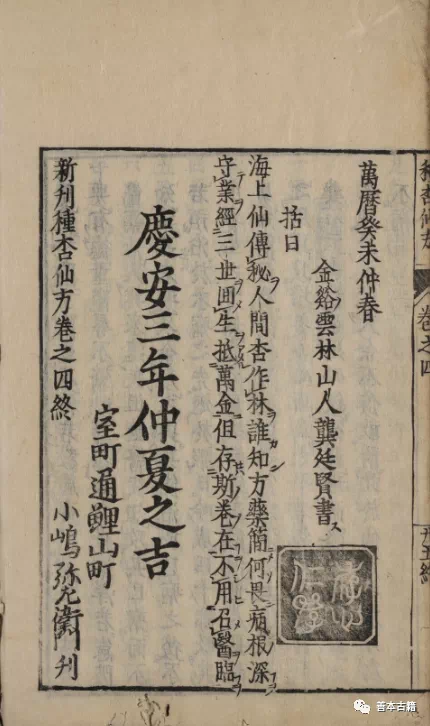 種杏仙方
卷之四
萬曆癸未仲春
金谿雲林山人龔廷賢書ス
括曰
海上仙傳秘人間杏作林誰知方藥簡何畏病根深
守業經三世囬生抵萬金但存斯卷在不用召醫臨
慶安三年仲夏之吉
室町通鯉山町
小嶋弥左衛門刊
新刊種杏仙方卷之四終
善本古籍